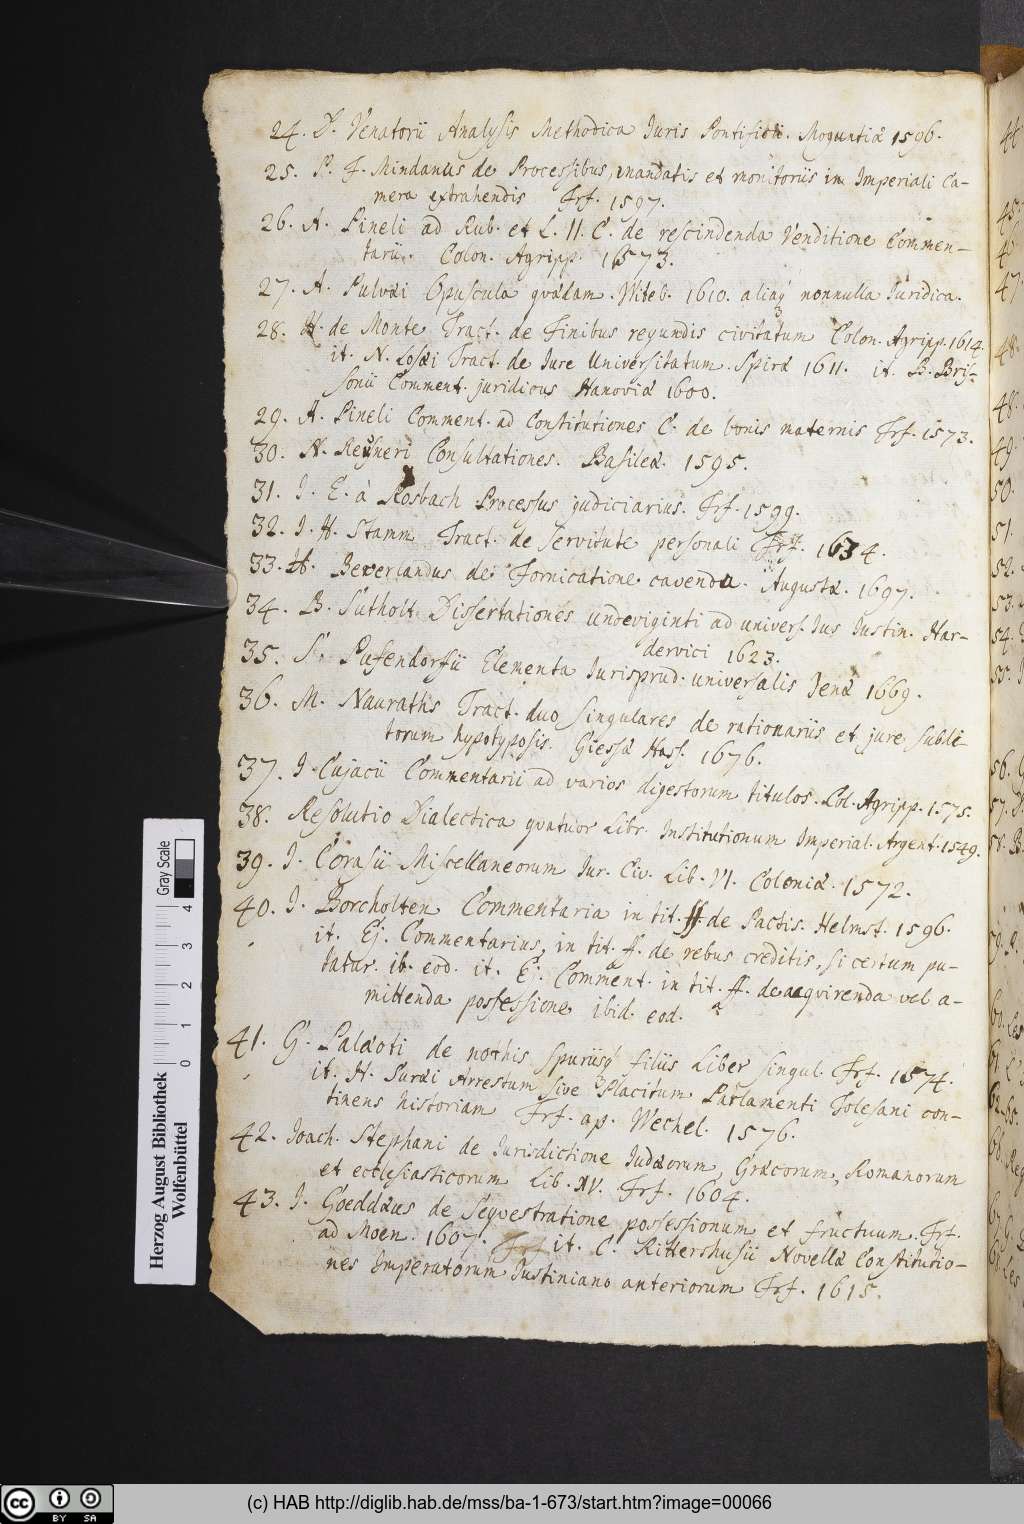 24. D. Venatorii Analysis Methodica Juris Pontificii. Moguntiæ 1596.
25. P. F. Mindanus de Processibus, mandatis et monitoriis in Imperiali Ca-
mera extrahendis Frf. 1597.
26. A. Pineli ad Rub. et L. II. C. de rescindenda Venditione Commen-
tarii. Colon. Agripp. 1573.
27. A. Pulvæi Opuscula qvædam. Witeb. 1610. aliaq3 nonnulla Juridica.
28. H. de Monte Tract. de Finibus regundis civitatum Colon. Agripp. 1614.
it. N. Losæi Tract. de Jure Universitatum. Spiræ 1611. it. B. Bris-
sonii Comment. juridicus Hanoviæ 1600.
29. A. Pineli Comment. ad Constitutiones C. de bonis maternis Frf. 1573.
30. N. Reusneri Consultationes. Basileæ. 1595.
31. J. E. à Rosbach Processus judiciarius. Frf. 1599.
32. J. H. Stamm Tract. de servitute personali Frf. 1634.
33. H. Beverlandus de Fornicatione cavenda. Augustæ. 1697.
34. B. Sutholt Dissertationes undeviginti ad univers. Jus Justin. Har-
dervici 1623.
35. S. Pufendorfii Elementa Jurisprud. universalis Jenæ 1669.
36. M. Nauraths Tract. duo singulares de rationariis et jure subdi-
torum hypotyposis. Giessæ Hass. 1676.
37. J. Cujacii Commentarii ad varios digestorum titulos. Col. Agripp. 1575.
38. Resolutio Dialectica qvatuor Libr. Institutionum Imperial. Argent. 1549.
39. J. Corasii Miscellaneorum Jur. Civ. Lib. VI. Coloniæ. 1572.
40. J. Borcholten Commentaria in tit. ff. de Pactis. Helmst. 1596.
it. Ej. Commentarius, in tit. ff. de rebus creditis, si certum pe-
tatur. ib. eod. it. Ej. Comment. in tit. ff. de acqvirenda vel a-
mittenda possessione ibid. eod.
41. G. Palæoti de nothis spuriisq3 filiis Liber singul. Frf. 1574.
it. H. Suræi Arrestum sive Placitum Parlamenti Tolesani con-
tinens historiam Frf. ap. Wechel. 1576.
42. Joach. Stephani de Jurisdictione Judæorum, Græcorum, Romanorum
et ecclesiasticorum Lib. XV. Frf. 1604.
43. J. Goeddæus de Seqvestratione possessionum et fructuum. Frf.
ad Moen. 1607. it. C. Rittershusii Novellæ Constitutio-
nes Imperatorum Justiniano anteriorum Frf. 1615.
Gray Scale
0 1 2 3 4
Herzog August Bibliothek
Wolfenbüttel
cc BY SA
(c) HAB http://diglib.hab.de/mss/ba-1-673/start.htm?image=00066